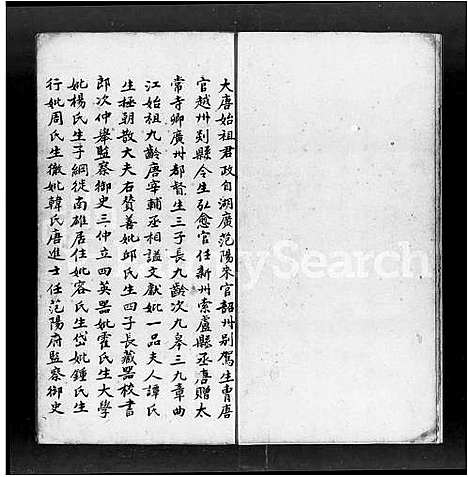 大唐始祖君政自湖廣范陽來官韶州别駕生胄唐
官越州剡縣令生弘愈官任新州索盧縣丞唐贈太
常寺卿廣州都督生三子長九齡次九皋三九章曲
江始祖九齡唐宰輔丞相謚文獻妣一品夫人譚氏
生極朝散大夫右贊善妣邱氏生四子長藏器校書
郎次仲舉監察御史三仲立四英器妣霍氏生大學
妣楊氏生子綱從南雄居住妣容氏生岱妣鍾氏生
行妣周氏生徹妣韓氏唐進士任范陽府監察御史
Search